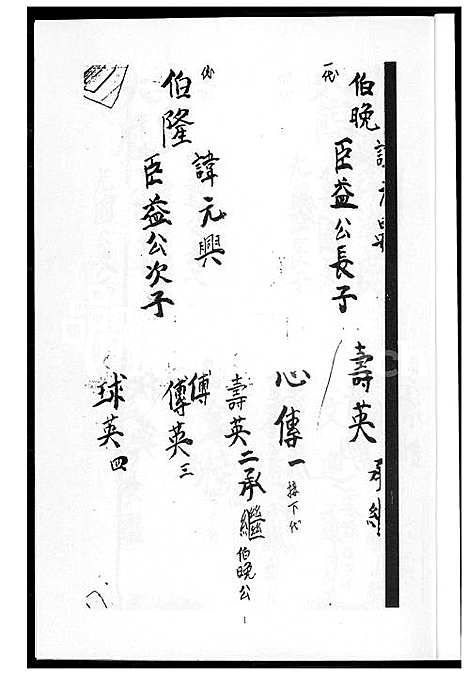 一代
伯晚
諱元昌
臣益公長子
壽英 承繼
代
伯隆
諱元興
臣益公次子
心傳一 接下代
壽英二承繼伯晚公
傳
傳英三
球英四
1